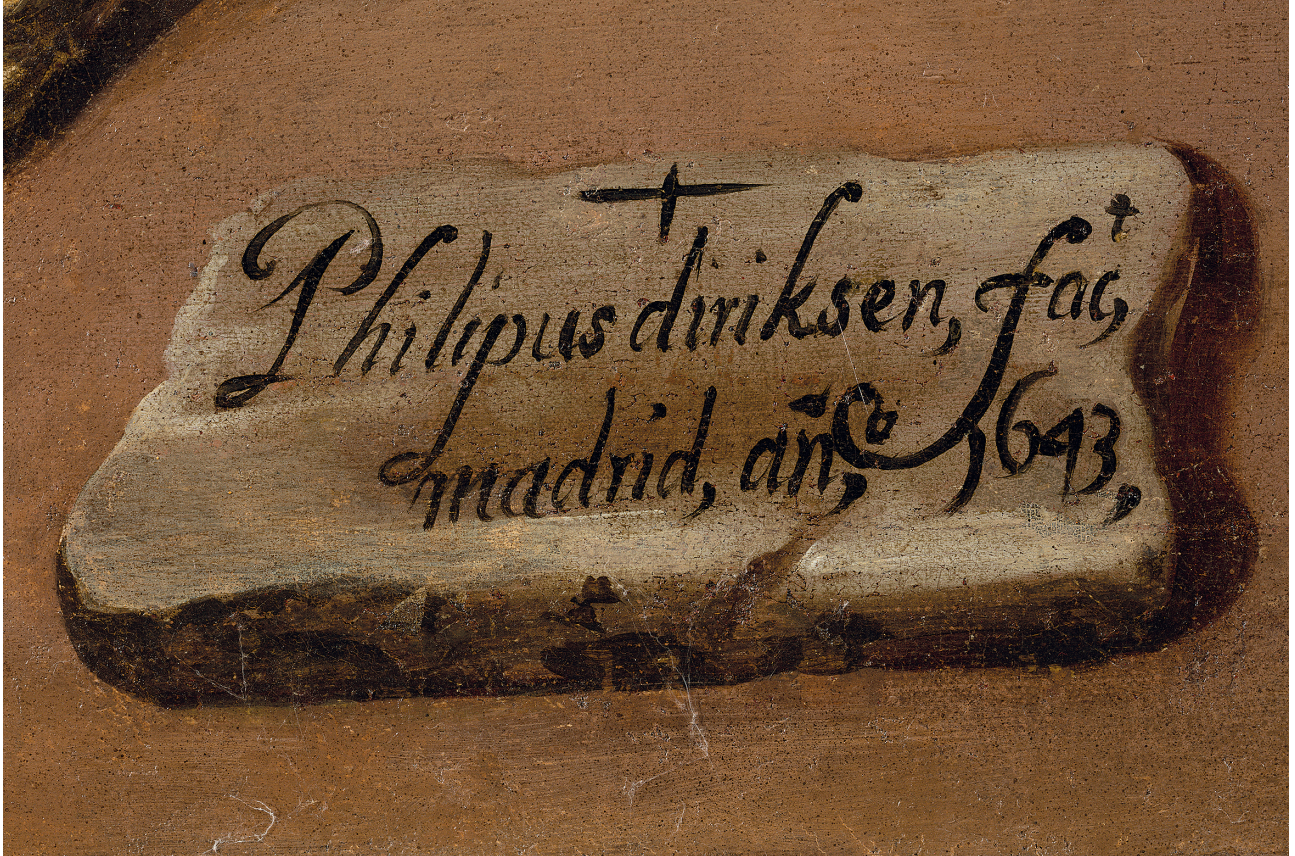 †
Philipus diriksen, facᵗ,
madrid, añ,º 1643,